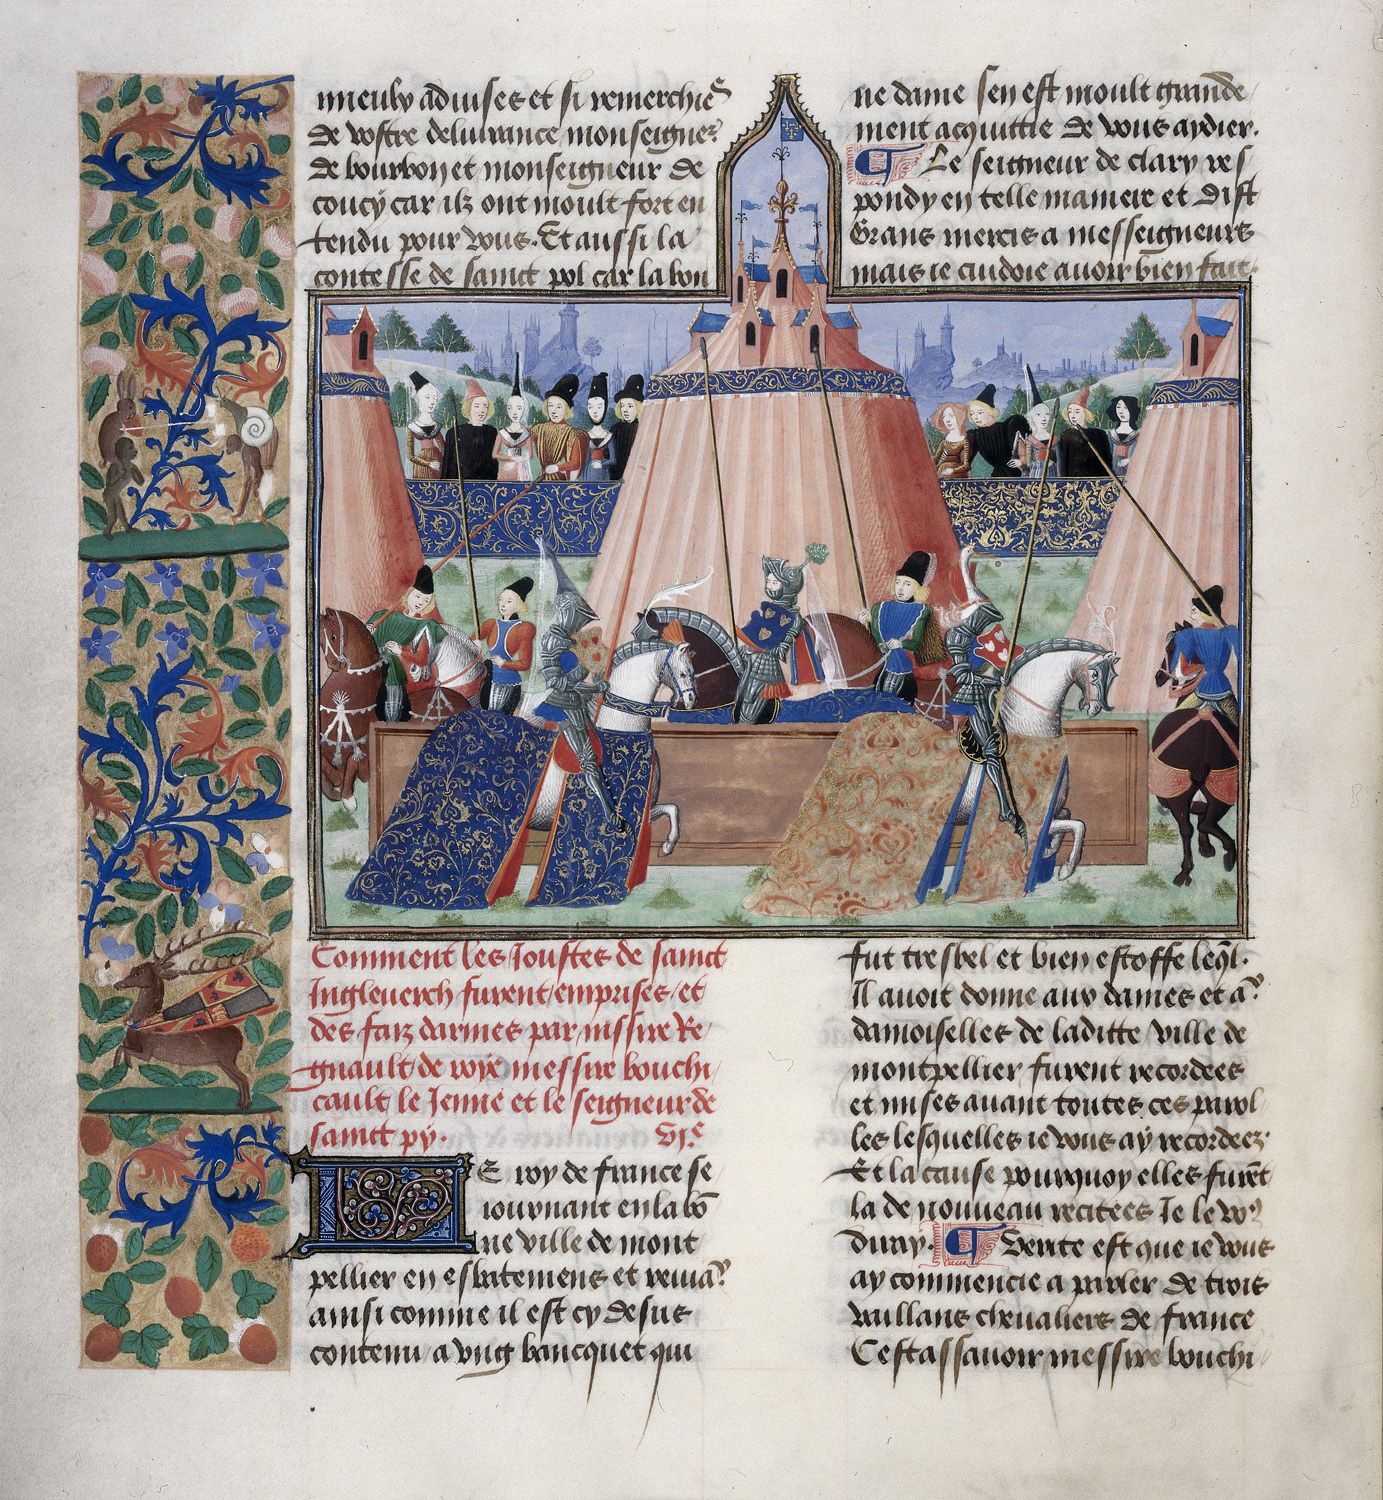 mieulx aduises et si remerchies
de vostre deliurance monseigneur
de bourbon et monseigneur de
coucy car ilz ont moult fort en
tendu pour vous. Et aussi la
contesse de sainct pol car la bon
ne dame sen est moult grande
ment acquittie de vous aydier.
Le seigneur de clary res
pondy en telle maniere et dist
Grans mercis a messeigneurs
mais ie cuidoie auoir bien fait.
Comment les Joustes de sainct
Ingleuerch furent emprises et
des faiz darmes par missire Re
gnault de roye messire bouchi
cault le Jenne et le seigneur de
sainct py. VIe
LE roy de france se
iournant en la bo
ne ville de mont
pellier en esbatemens et reuiaus
ainsi comme il est cy desus
contenu a vng bancquet qui
fut tresbel et bien estoffe leql.
Il auoit donne aux dames et a
damoiselles de laditte ville de
montpellier furent recordees
et mises auant toutes ces parol
les lesquelles ie vous ay recordeez.
Et la cause pourquoy elles furent
la de nouueau recitees Je le vo9
diray. Verite est que ie vous
ay commencie a parler de trois
vaillans cheualiers de france
Cest assauoir messire bouchi